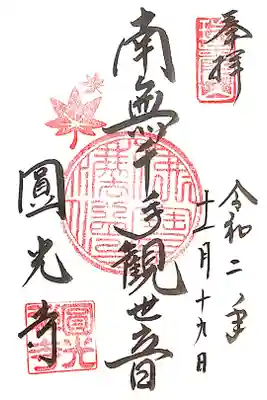 奉拝
令和二年
十一月十九日
南無千手観世音
圓光寺
圓光寺